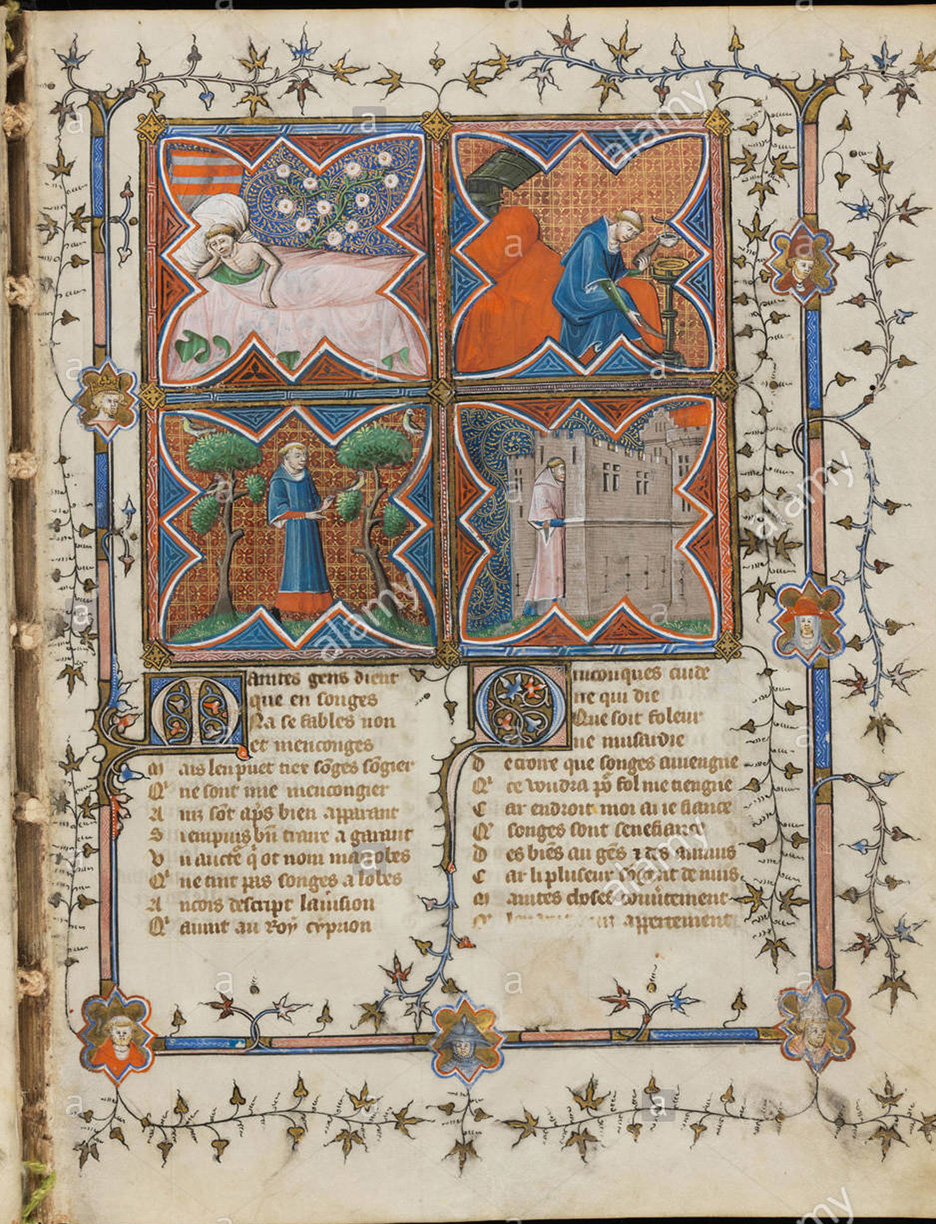 Maintes gens dient
que en songes
Na se fables non
et menconges
Mais len puet tiex sõges sõgier
Qͥ ne sont mie mencongier
Ainz sõt ap̃s bien apparant
Si en puis bñ traire a garant
Un auctẽ qͥ ot nom macrobes
Qͥ ne tint pas songes a lobes
Ancois descript lauision
Qͥ auint au Roy cyprion
Quiconques cuide
ne qui die
Que soit foleur
ne musardie
De croire que songes auiengne
Qͥ ce voudra põ fol me tiengne
Car endroit moi ai ie fiance
Qͤ songes sont senefiance
Des biẽs au gẽs ⁊ des anuis
Car li pluseur de nuis
Maintes choses couuertement
appertement
alamy